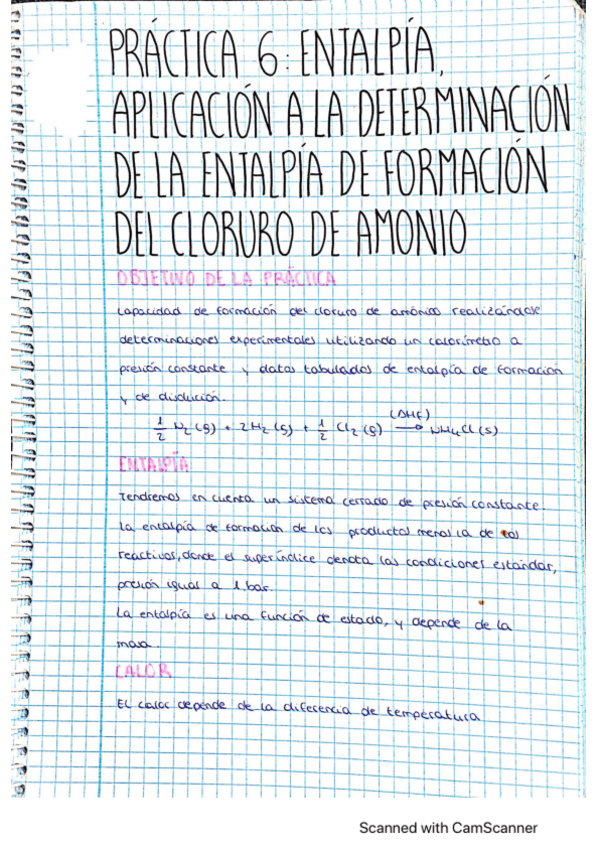 PRÁCTICA 6: ENTALPÍA,
APLICACIÓN A LA DETERMINACIÓN
DE LA ENTALPÍA DE FORMACIÓN
DEL CLORURO DE AMONIO
OBJETIVO DE LA PRÁCTICA
Capacidad de formación del cloruro de amónico realizándose
determinaciones experimentales utilizando un calorímetro a
presión constante y datos tabulados de entalpía de formación
y de disolución.
1/2 N2 (g) + 2H2 (g) + 1/2 Cl2 (g) (ΔHf) → NH4Cl (s)
ENTALPÍA
Tendremos en cuenta un sistema cerrado de presión constante.
La entalpía de formación de los productos menos la de los
reactivos, donde el superíndice denota las condiciones estándar,
presión igual a 1 bar.
La entalpía es una función de estado, y depende de la
masa.
CALOR
El calor depende de la diferencia de temperatura
Scanned with CamScanner